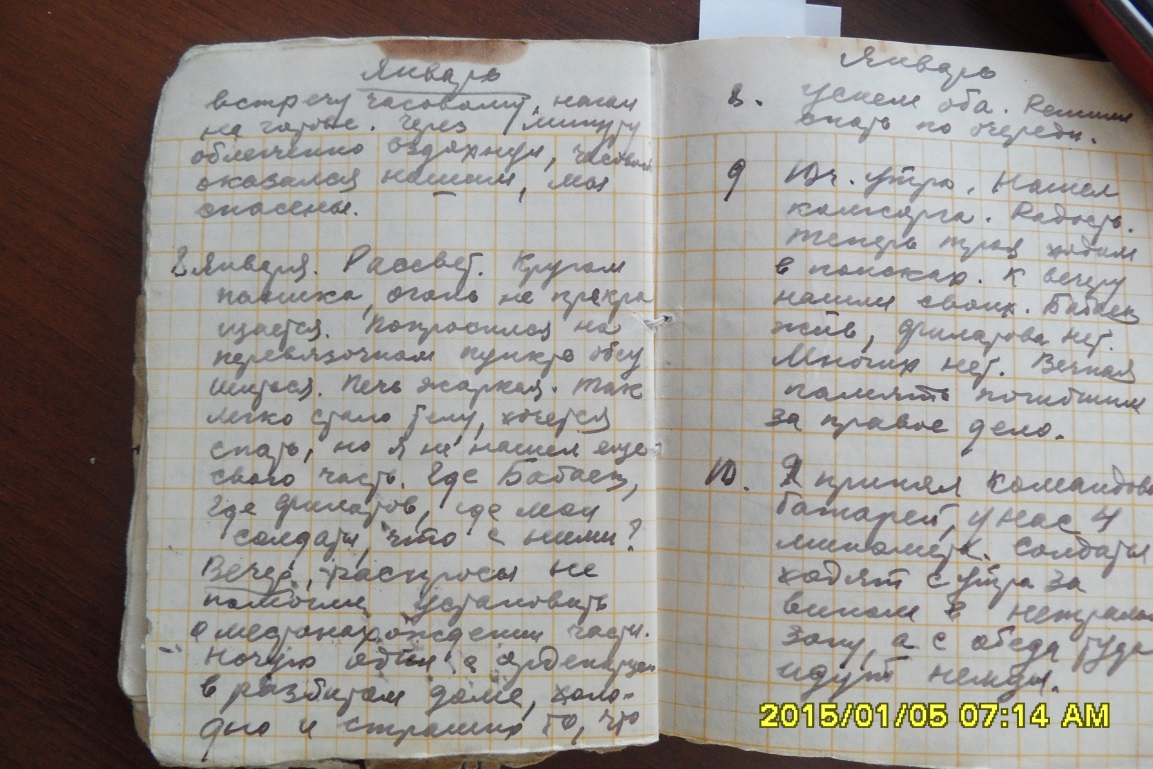 Январь
встречу часовому, наган
на готове. Через минуту
облегченно вздохнул, часовой
оказался нашим, мы
спасены.
8 января. Рассвет. Кругом
паника, огонь не прекра
щается. Попросился на
перевязочном пункте обсу
шиться. Печь жаркая. Так
легко стало телу, хочется
спать, но я не нашел еще
свою часть. Где Бабаец,
где Филатов, где мои
солдаты, что с ними?
Вечер, расспросы не
помогли установить
о местонахождении части.
Ночую один с
в разбитом доме, холо-
дно и страшно то, что
Январь
8. уснем оба. Решили
спать по очереди.
9 10ч. утра. Нашел
комсорга. Радость.
Теперь трое ходим
в поисках. К вечеру
нашли своих. Бабаец
жив, Филатова нет.
Многих нет. Вечная
память погибшим
за правое дело.
10. Я принял командова
батареей, у нас 4
миномета. Солдаты
ходят с утра за
вином в нейтральн
зону, а с обеда туда
идут немцы.
2015/01/05 07:14 AM